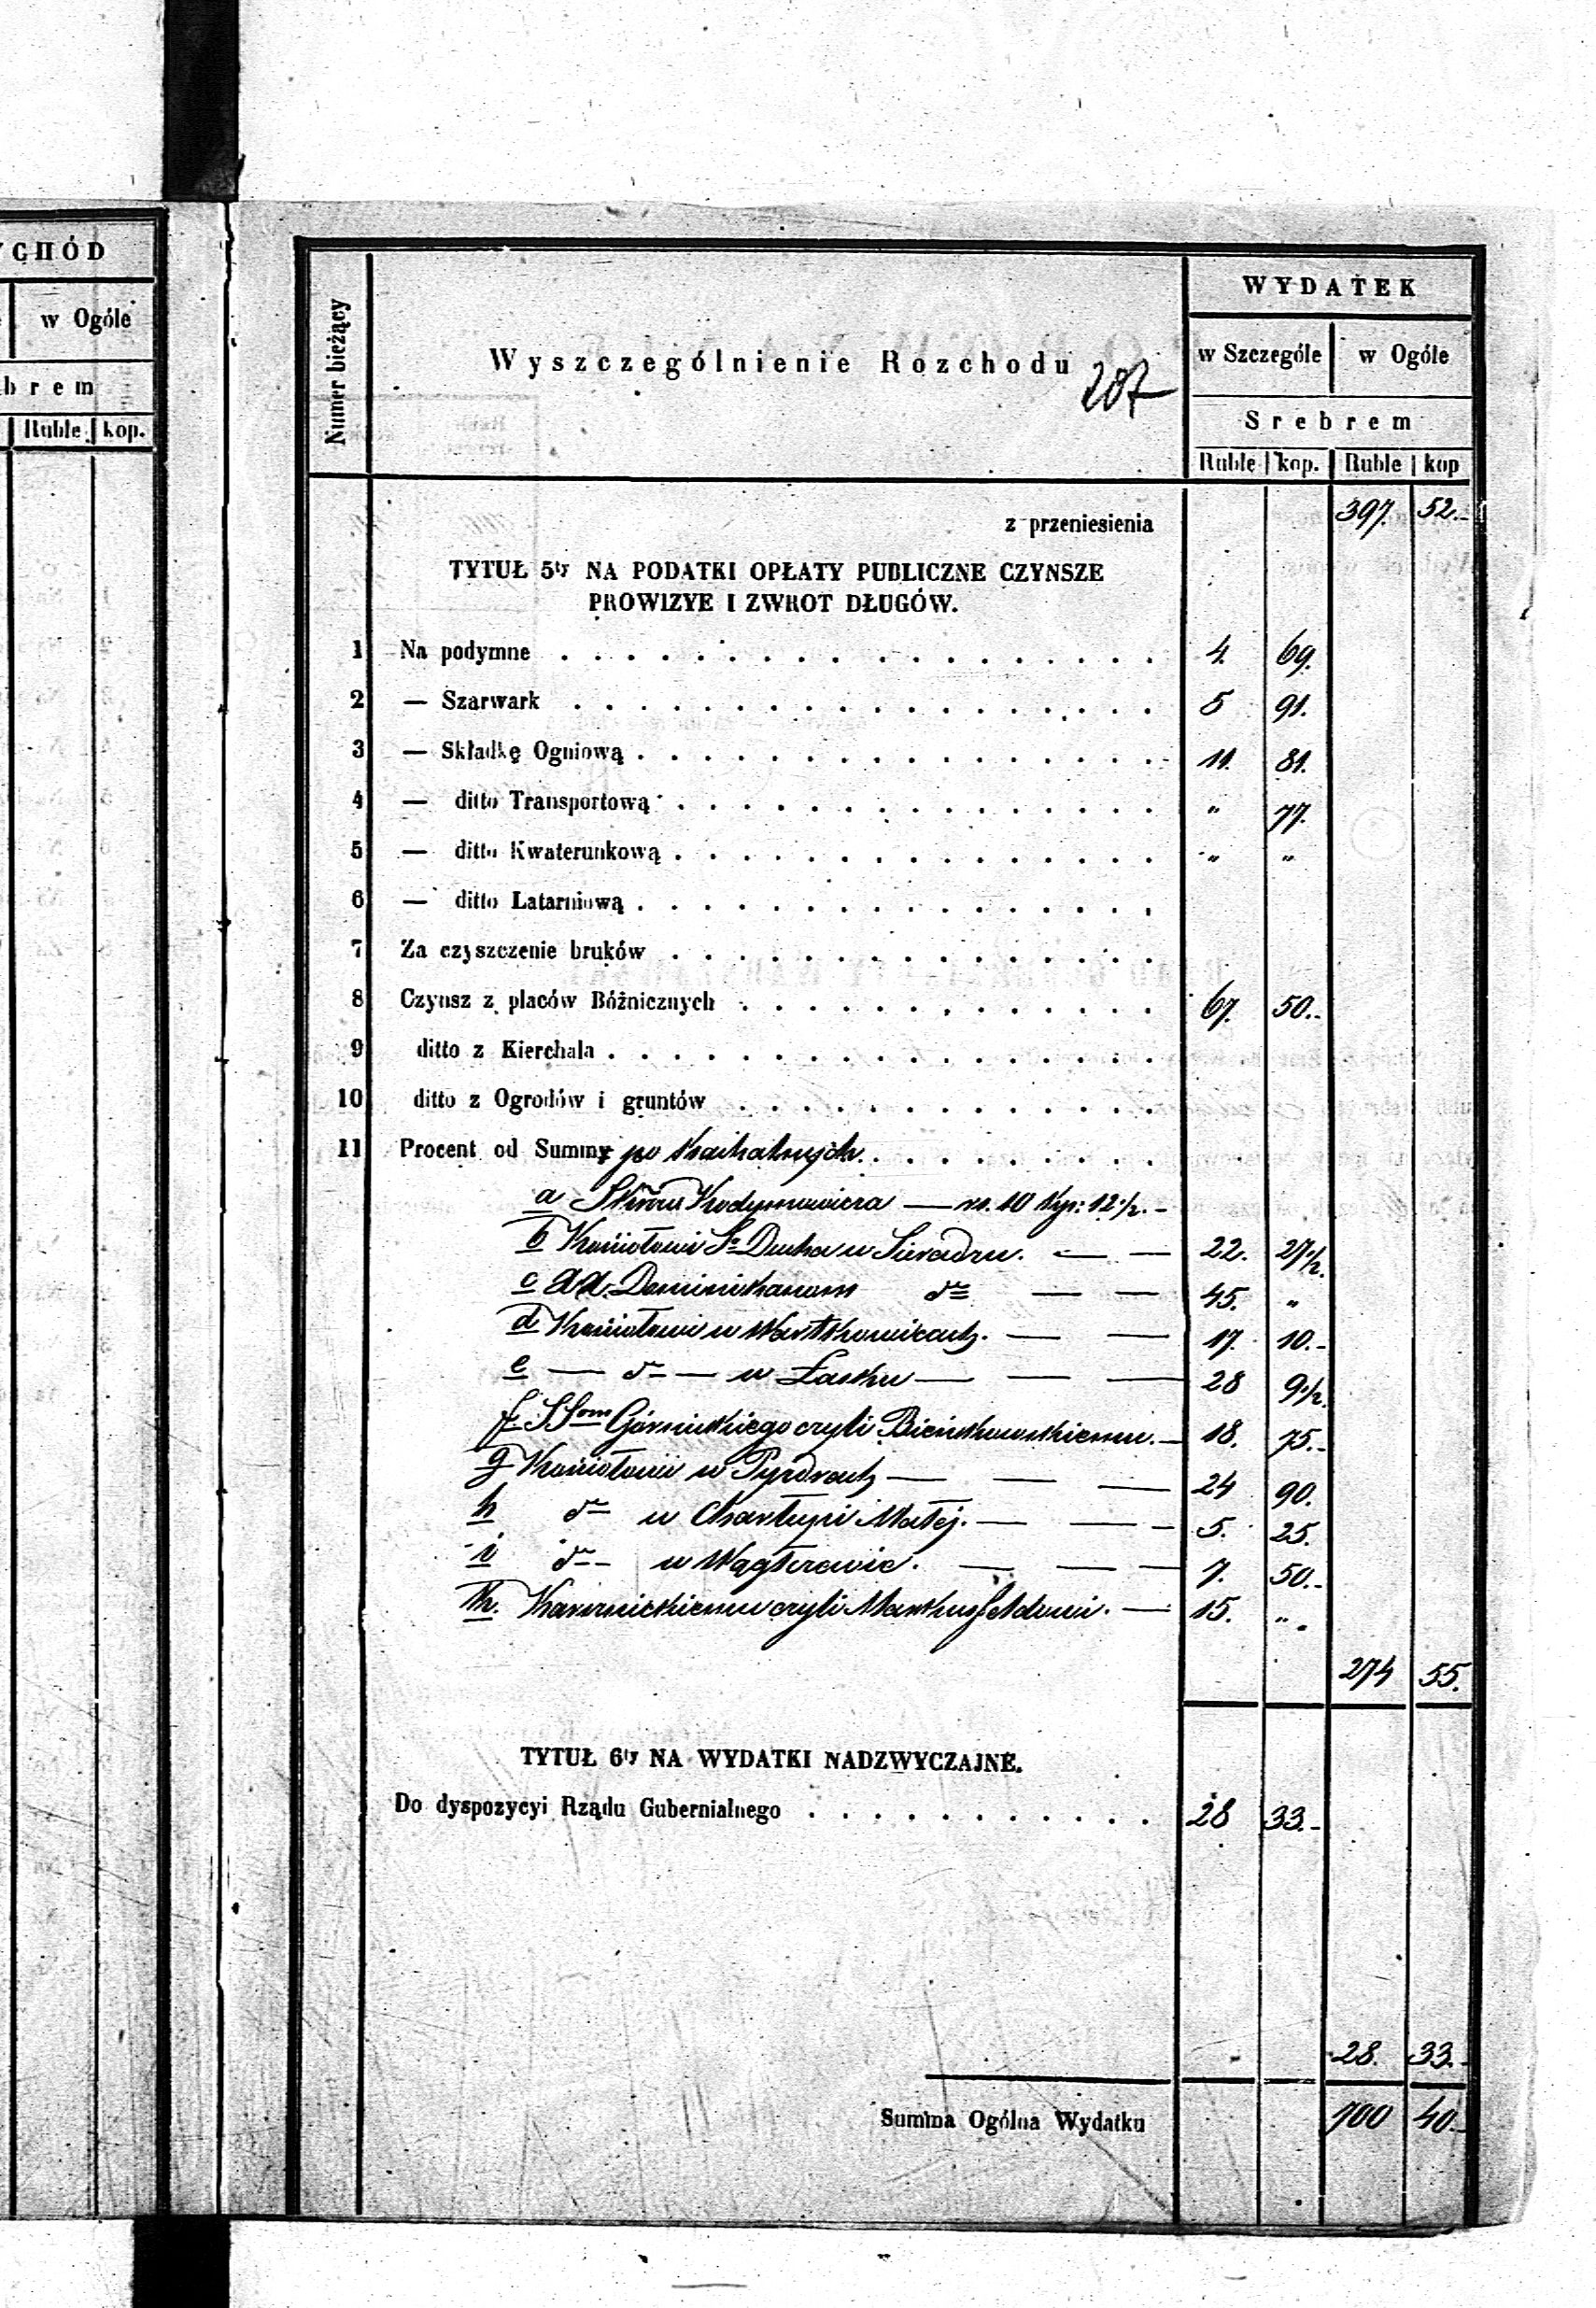 YCHÓD
w Ogóle
brem
Ruble kop.
Numer bieżący
Wyszczególnienie Rozchodu
207
WYDATEK
w Szczególe w Ogóle
Srebrem
Ruble kop. Ruble kop
z przeniesienia 397. 52.-
TYTUŁ 5ty NA PODATKI OPŁATY PUBLICZNE CZYNSZE
PROWIZYE I ZWROT DŁUGÓW.
1 Na podymne . . . 4. 69.
2 — Szarwark . . . 5 91.
3 — Składkę Ogniową . . . 11. 81.
4 — ditto Transportową . . . " 77.
5 — ditto Kwaterunkową . . . " "
6 — ditto Latarniową . . .
7 Za czyszczenie bruków . . .
8 Czynsz z placów Bóżnicznych . . . 67. 50.-
9 ditto z Kierchala . . .
10 ditto z Ogrodów i gruntów . . .
11 Procent od Summy po Kachalnych . . .
a — rs. 10 kop: 12 1/2.-
b Kościołowi Sgo Ducha w Sieradzu. — — 22. 27 1/2.
c Dominikanom do — — 45. "
d Kościołowi w Wartkowicach. — — 17. 10.-
e — do — w Łasku — — — 28 9 1/2
f. SSom Górnickiego czyli Bieńkowskiemu. — 18. 75.-
g Kościołowi w — — — 24 90.
h do w Charłupi Małej. — — - 5. 25.
i do - w Wągłczewie. — — — 7. 50.-
k. czyli Markusfeldowi. — 15. " -
274 55.
TYTUŁ 6ty NA WYDATKI NADZWYCZAJNE.
Do dyspozycyi Rządu Gubernialnego . . . 28 33.-
28. 33.-
Summa Ogólna Wydatku 700 40.-